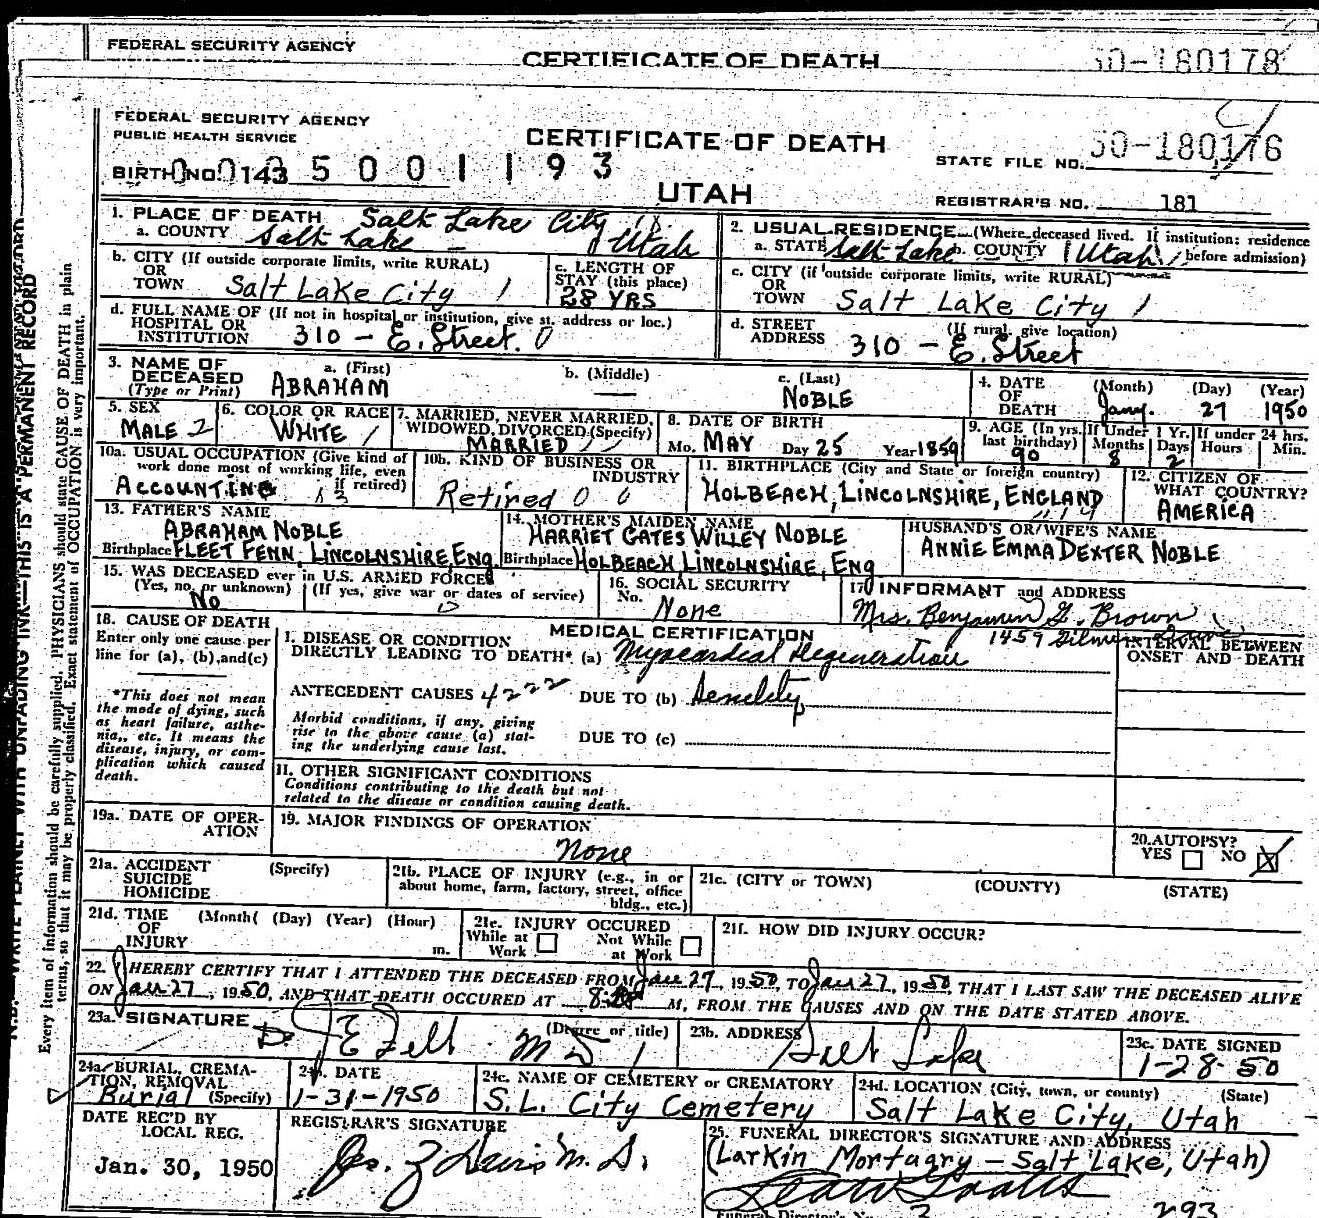 FEDERAL SECURITY AGENCY
CERTIFICATE OF DEATH
50-180178
FEDERAL SECURITY AGENCY
PUBLIC HEALTH SERVICE
CERTIFICATE OF DEATH
STATE FILE NO. 50-180176
BIRTH NO. 0143 5001193
UTAH
REGISTRAR'S NO. 181
1. PLACE OF DEATH Salt Lake City
a. COUNTY Salt Lake – Utah
2. USUAL RESIDENCE (Where deceased lived. If institution: residence
a. STATE Salt Lake b. COUNTY Utah before admission)
b. CITY (If outside corporate limits, write RURAL)
OR
TOWN Salt Lake City
c. LENGTH OF
STAY (this place)
28 YRS
c. CITY (if outside corporate limits, write RURAL)
OR
TOWN Salt Lake City
d. FULL NAME OF (If not in hospital or institution, give st. address or loc.)
HOSPITAL OR
INSTITUTION 310 – E. Street. 0
d. STREET (If rural, give location)
ADDRESS 310 – E. Street
3. NAME OF a. (First) b. (Middle) c. (Last)
DECEASED
(Type or Print) ABRAHAM — NOBLE
4. DATE (Month) (Day) (Year)
OF
DEATH Jany. 27 1950
5. SEX
MALE 2
6. COLOR OR RACE
WHITE 1
7. MARRIED, NEVER MARRIED,
WIDOWED, DIVORCED (Specify)
MARRIED
8. DATE OF BIRTH
Mo. MAY Day 25 Year 1859
9. AGE (In yrs. If Under 1 Yr. If under 24 hrs.
last birthday) Months Days Hours Min.
90 8 2
10a. USUAL OCCUPATION (Give kind of
work done most of working life, even
if retired)
ACCOUNTING
10b. KIND OF BUSINESS OR
INDUSTRY
Retired 0 0
11. BIRTHPLACE (City and State or foreign country)
HOLBEACH, LINCOLNSHIRE, ENGLAND
12. CITIZEN OF
WHAT COUNTRY?
AMERICA
13. FATHER'S NAME
ABRAHAM NOBLE
Birthplace FLEET FENN, LINCOLNSHIRE, ENG.
14. MOTHER'S MAIDEN NAME
HARRIET GATES WILLEY NOBLE
Birthplace HOLBEACH LINCOLNSHIRE, ENG
HUSBAND'S OR WIFE'S NAME
ANNIE EMMA DEXTER NOBLE
15. WAS DECEASED ever in U.S. ARMED FORCES
(Yes, no, or unknown) (If yes, give war or dates of service)
No
16. SOCIAL SECURITY
No. None
17. INFORMANT and ADDRESS
Mrs. Benjamin G. Brown
1459 Gilmer
18. CAUSE OF DEATH
Enter only one cause per
line for (a), (b), and (c)
*This does not mean
the mode of dying, such
as heart failure, asthe-
nia, etc. It means the
disease, injury, or com-
plication which caused
death.
MEDICAL CERTIFICATION
I. DISEASE OR CONDITION
DIRECTLY LEADING TO DEATH* (a) Myocardial Degeneration
INTERVAL BETWEEN
ONSET AND DEATH
ANTECEDENT CAUSES 4222 DUE TO (b) Senility
Morbid conditions, if any, giving
rise to the above cause (a) stat-
ing the underlying cause last.
DUE TO (c)
II. OTHER SIGNIFICANT CONDITIONS
Conditions contributing to the death but not
related to the disease or condition causing death.
19a. DATE OF OPER-
ATION
19. MAJOR FINDINGS OF OPERATION
None
20. AUTOPSY?
YES NO X
21a. ACCIDENT (Specify)
SUICIDE
HOMICIDE
21b. PLACE OF INJURY (e.g., in or
about home, farm, factory, street, office
bldg., etc.)
21c. (CITY or TOWN) (COUNTY) (STATE)
21d. TIME (Month( (Day) (Year) (Hour)
OF
INJURY m.
21e. INJURY OCCURED
While at Not While
Work at Work
21f. HOW DID INJURY OCCUR?
22. I HEREBY CERTIFY THAT I ATTENDED THE DECEASED FROM Jan 27, 1950, TO Jan 27, 1950, THAT I LAST SAW THE DECEASED ALIVE
ON Jan 27, 1950, AND THAT DEATH OCCURED AT M, FROM THE CAUSES AND ON THE DATE STATED ABOVE.
23a. SIGNATURE (Degree or title)
J E Felt M D
23b. ADDRESS
Salt Lake
23c. DATE SIGNED
1-28-50
24a. BURIAL, CREMA-
TION, REMOVAL
Burial (Specify)
24b. DATE
1-31-1950
24c. NAME OF CEMETERY or CREMATORY
S.L. City Cemetery
24d. LOCATION (City, town, or county) (State)
Salt Lake City, Utah
DATE REC'D BY
LOCAL REG.
Jan. 30, 1950
REGISTRAR'S SIGNATURE
Jos. Z Davis M. D.
25. FUNERAL DIRECTOR'S SIGNATURE AND ADDRESS
(Larkin Mortuary – Salt Lake, Utah)
Funeral Director's No. 293
N.B.—WRITE PLAINLY WITH UNFADING INK—THIS IS A PERMANENT RECORD
Every item of information should be carefully supplied. PHYSICIANS should state CAUSE OF DEATH in plain
terms, so that it may be properly classified. Exact statement of OCCUPATION is very important.